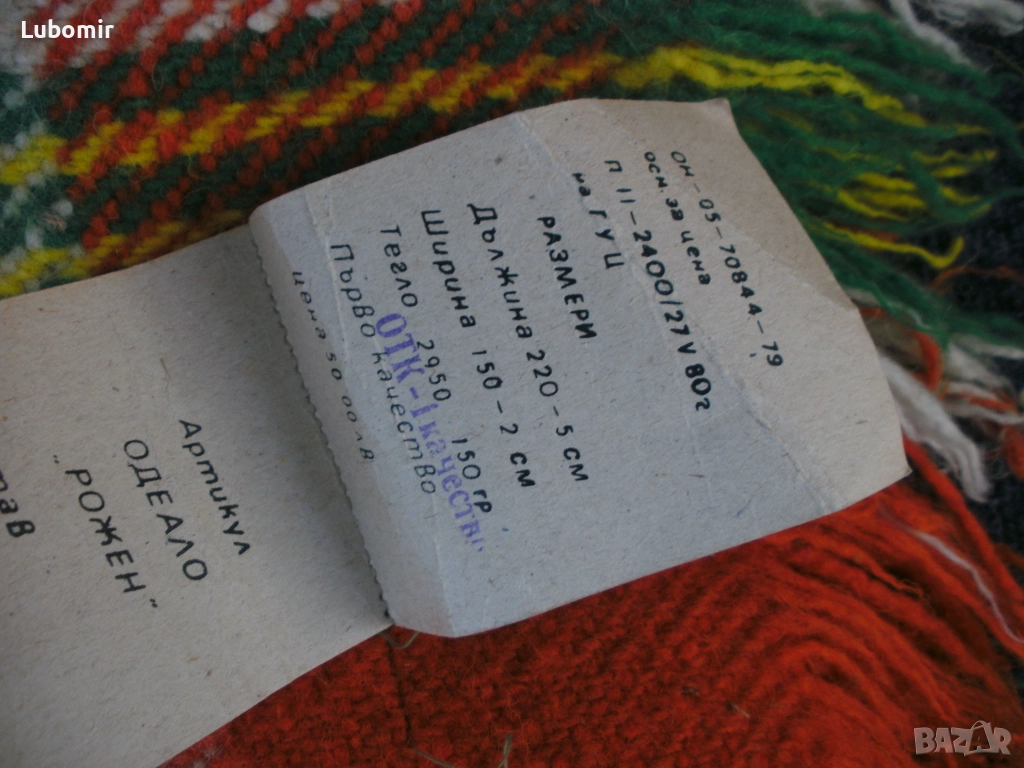 Lubomir
ОН-05-70844-79
осн. за цена
П 11-2400/27 V 80г
на ГУЦ
РАЗМЕРИ
Дължина 220-5 см
Ширина 150-2 см
Тегло 2950 150 гр
Първо качество
ОТК-I качество
цена 50 00 лв
Артикул
ОДЕАЛО
„РОЖЕН"
BAZAR